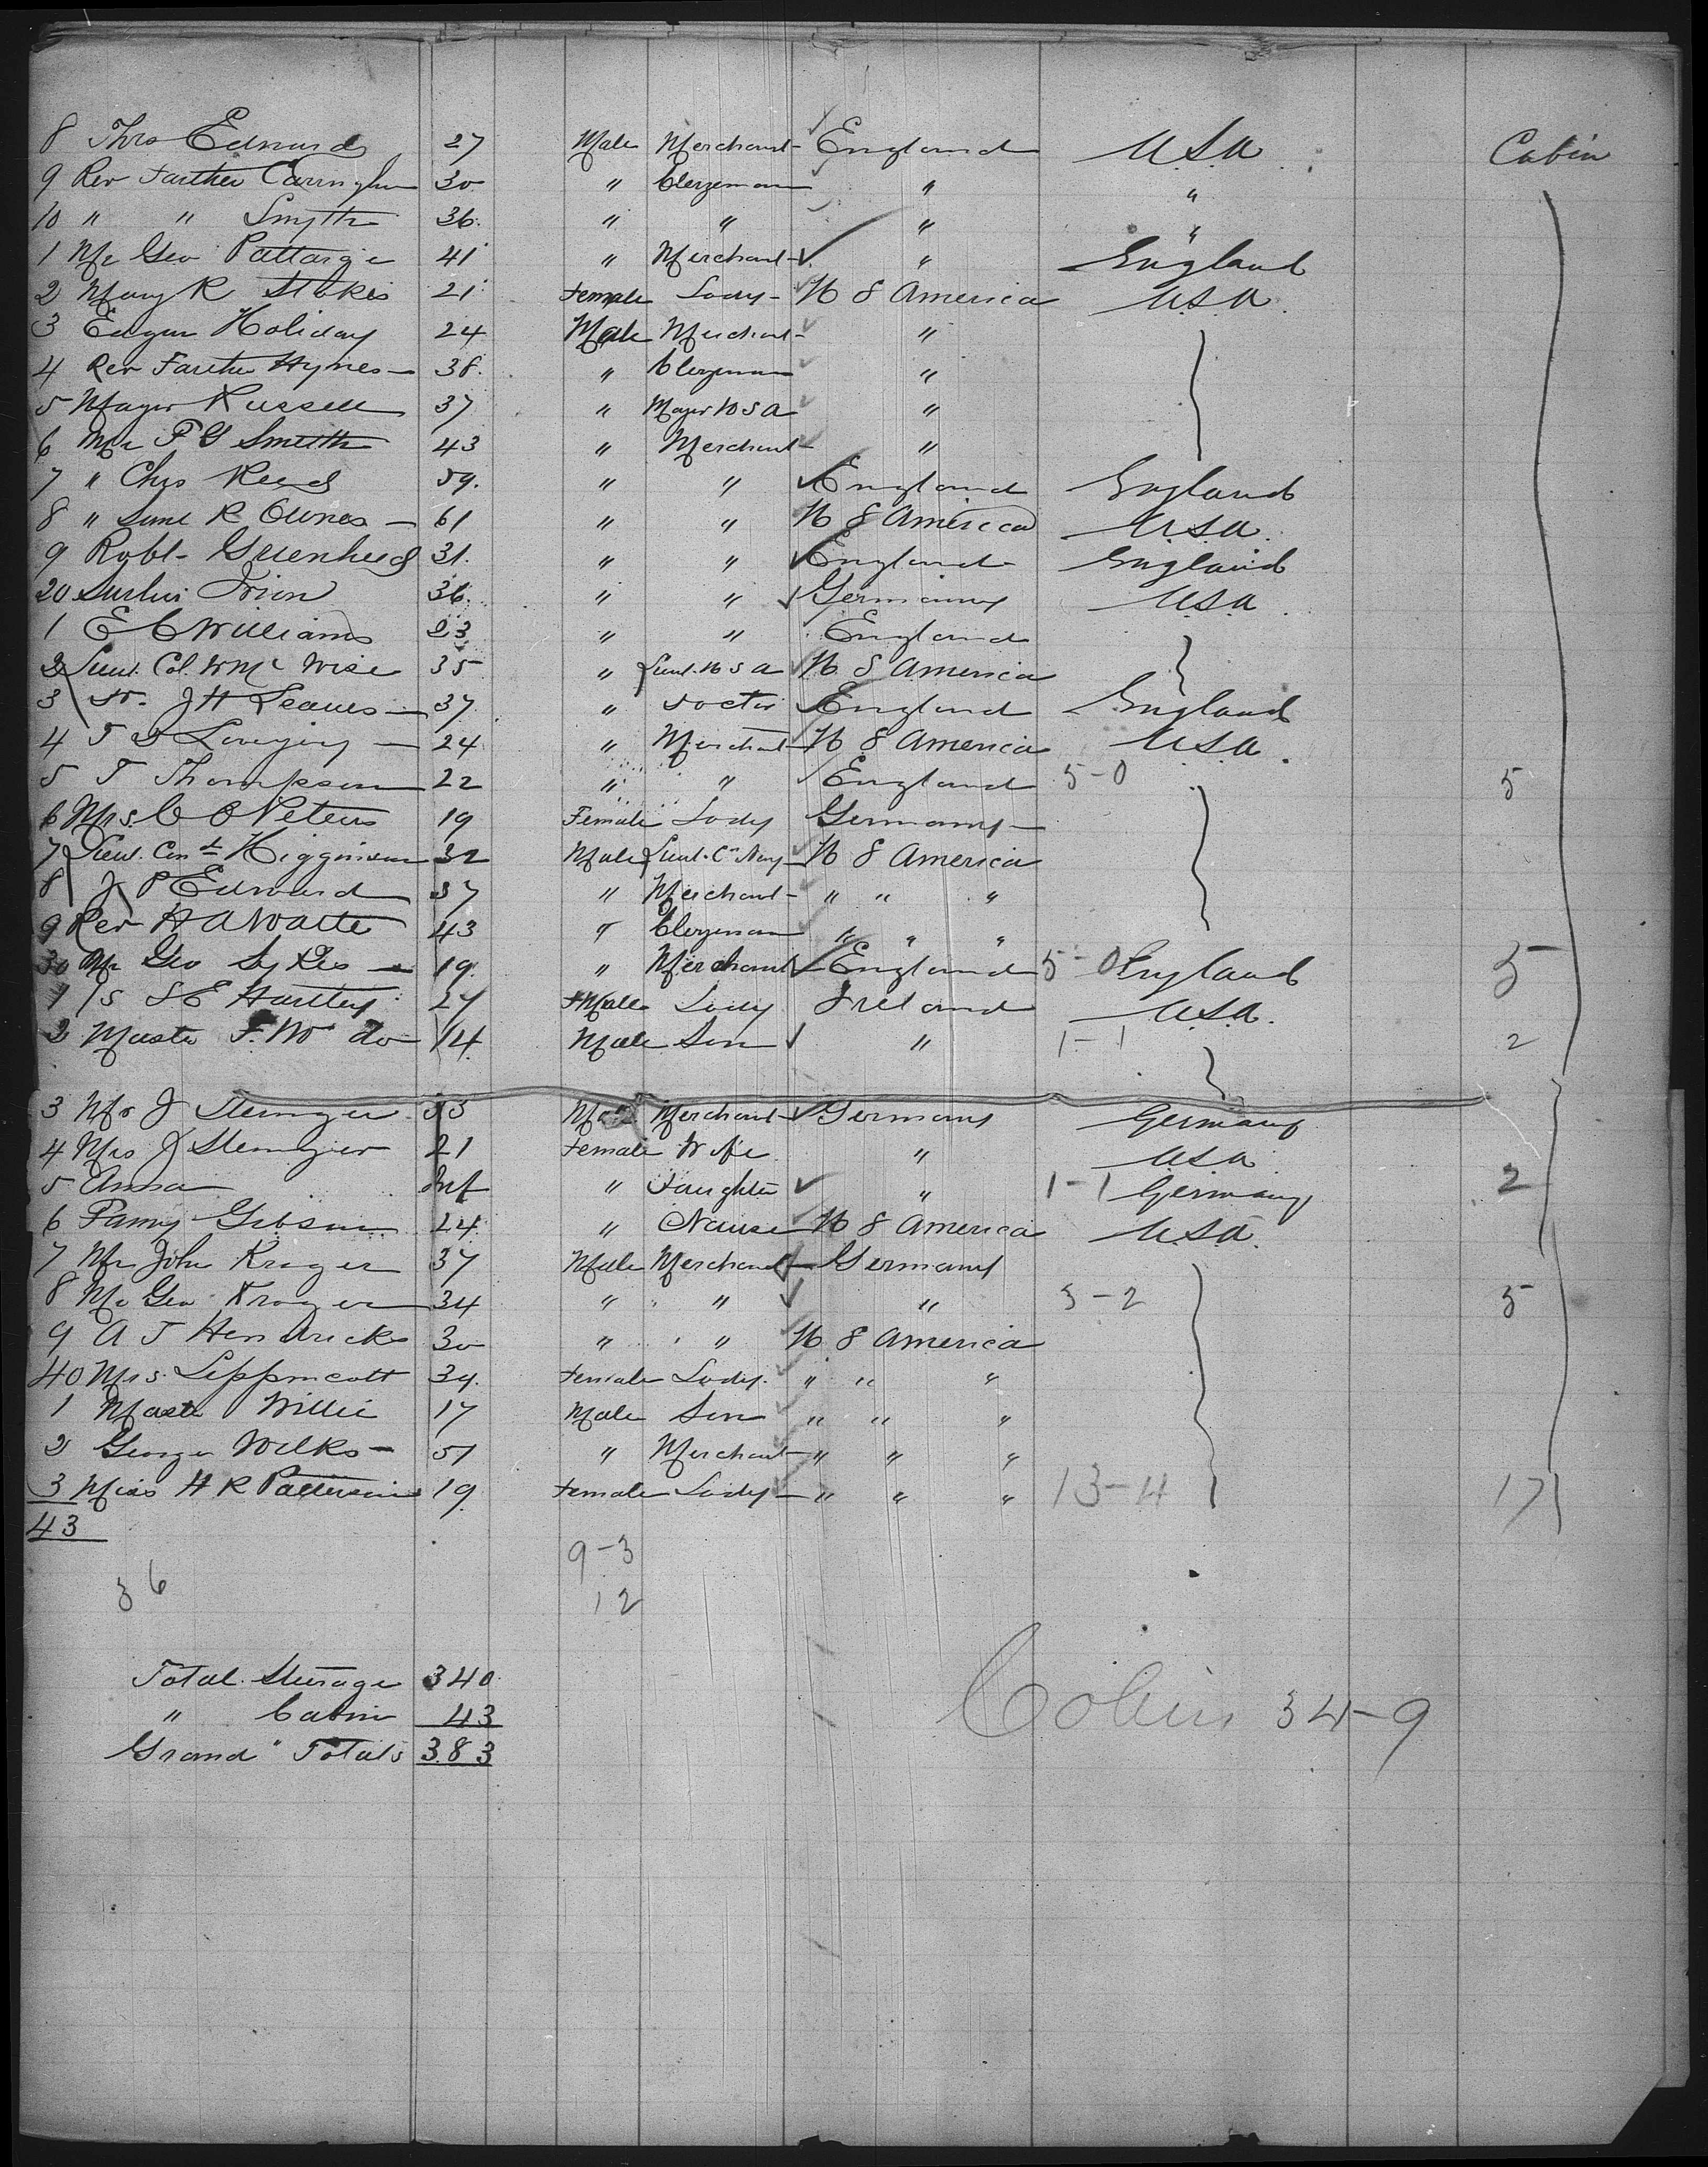 8 Thos Edward 27 Male Merchant England U.S.A Cabin
9 Rev Farther 30 " Clergeman " "
10 " " Smyth 36 " " " "
1 Mr Geo 41 " Merchant " England
2 Mary R Stokes 21 Female Lady U S America U.S.A
3 Holiday 24 Male Merchant "
4 Rev Farther Hynes 38 " Clergeman "
5 Mayor Russell 37 " Mayor U S A "
6 Mr P G Smith 43 " Merchant "
7 " Chas Reed 59 " " England England
8 " Saml R 61 " " U S America U.S.A
9 Robt Greenhead 31 " " England England
20 36 " " Germany U.S.A
1 E C Williams 23 " " England
2 Lieut. Col. Wm Wise 35 " Lieut. U S A U S America
3 Dr. J H 37 " Doctor England England
4 24 " Merchant U S America U.S.A
5 T Thompson 22 " " England 5-0 5
6 Mrs. C O Peters 19 Female Lady Germany
7 Lieut. Higginson 32 Male Lieut. Navy U S America
8 J P Edward 37 " Merchant " " "
9 Rev H A Waite 43 " Clergeman " " "
30 Mr Geo Sykes 19 " Merchant England 5-0 England 5
1 S E Hartley 27 Lady Ireland U.S.A
2 Master F. W do 14 Male Son " 1-1 2
3 Mr J 33 Merchant Germany Germany
4 Mrs J 21 Female Wife " U.S.A
5 Anna Inf " Daughter " 1-1 Germany 2
6 Fanny Gibson 24 " Nause U S America U.S.A
7 Mr John Kroger 37 Male Merchant Germany
8 Mr Geo Kroger 34 " " " 3-2 5
9 A J Hendricks 30 " " U S America
40 Mrs. Lippincott 39 Female Lady " " "
1 Master Willie 17 Male Son " " "
2 George Wilks 51 " Merchant " " "
3 Miss H R Patterson 19 Female Lady " " " 13-4 17
43
9-3
36
12
Total Sterage 340
" Cabin 43
Grand Totals 383
Cabin 34-9